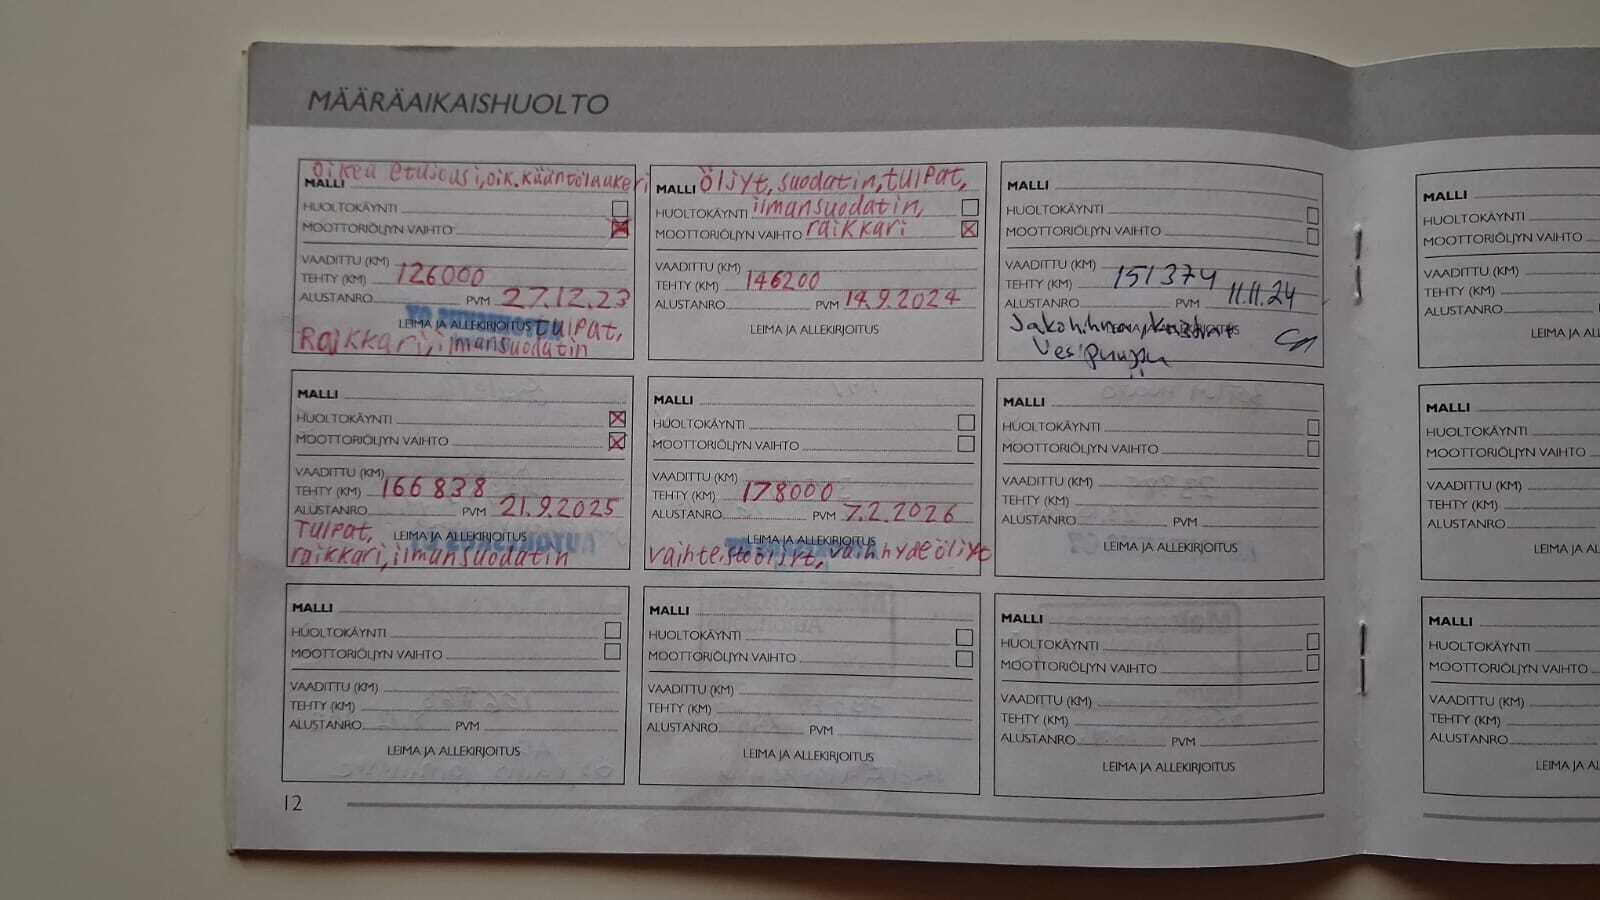 MÄÄRÄAIKAISHUOLTO
oikea etujousi, oik. kääntölaakeri
MALLI
HUOLTOKÄYNTI
MOOTTORIÖLJYN VAIHTO
VAADITTU (KM)
TEHTY (KM) 126000
ALUSTANRO PVM 27.12.23
LEIMA JA ALLEKIRJOITUS tulpat,
Raikkari, ilmansuodatin
MALLI Öljyt, suodatin, tulpat,
HUOLTOKÄYNTI ilmansuodatin,
MOOTTORIÖLJYN VAIHTO raikkari
VAADITTU (KM)
TEHTY (KM) 146200
ALUSTANRO PVM 14.9.2024
LEIMA JA ALLEKIRJOITUS
MALLI
HUOLTOKÄYNTI
MOOTTORIÖLJYN VAIHTO
VAADITTU (KM)
TEHTY (KM) 151374
ALUSTANRO PVM 11.11.24
Jakohihna, LEIMA JA ALLEKIRJOITUS
Vesipumppu
MALLI
HUOLTOKÄYNTI
MOOTTORIÖLJYN VAIHTO
VAADITTU (KM)
TEHTY (KM) 166 838
ALUSTANRO PVM 21.9.2025
Tulpat, LEIMA JA ALLEKIRJOITUS
raikkari, ilmansuodatin
MALLI
HUOLTOKÄYNTI
MOOTTORIÖLJYN VAIHTO
VAADITTU (KM)
TEHTY (KM) 178000
ALUSTANRO PVM 7.2.2026
LEIMA JA ALLEKIRJOITUS
vaihteistoöljyt, vaihhyde öljyt
MALLI
HUOLTOKÄYNTI
MOOTTORIÖLJYN VAIHTO
VAADITTU (KM)
TEHTY (KM)
ALUSTANRO PVM
LEIMA JA ALLEKIRJOITUS
MALLI
HUOLTOKÄYNTI
MOOTTORIÖLJYN VAIHTO
VAADITTU (KM)
TEHTY (KM)
ALUSTANRO PVM
LEIMA JA ALLEKIRJOITUS
MALLI
HUOLTOKÄYNTI
MOOTTORIÖLJYN VAIHTO
VAADITTU (KM)
TEHTY (KM)
ALUSTANRO PVM
LEIMA JA ALLEKIRJOITUS
MALLI
HUOLTOKÄYNTI
MOOTTORIÖLJYN VAIHTO
VAADITTU (KM)
TEHTY (KM)
ALUSTANRO PVM
LEIMA JA ALLEKIRJOITUS
12
MALLI
HUOLTOKÄYNTI
MOOTTORIÖLJYN VAIHTO
VAADITTU (KM)
TEHTY (KM)
ALUSTANRO
LEIMA JA
MALLI
HUOLTOKÄYNTI
MOOTTORIÖLJYN VAIHTO
VAADITTU (KM)
TEHTY (KM)
ALUSTANRO
LEIMA JA AL
MALLI
HUOLTOKÄYNTI
MOOTTORIÖLJYN VAIHTO
VAADITTU (KM)
TEHTY (KM)
ALUSTANRO
LEIMA JA AL